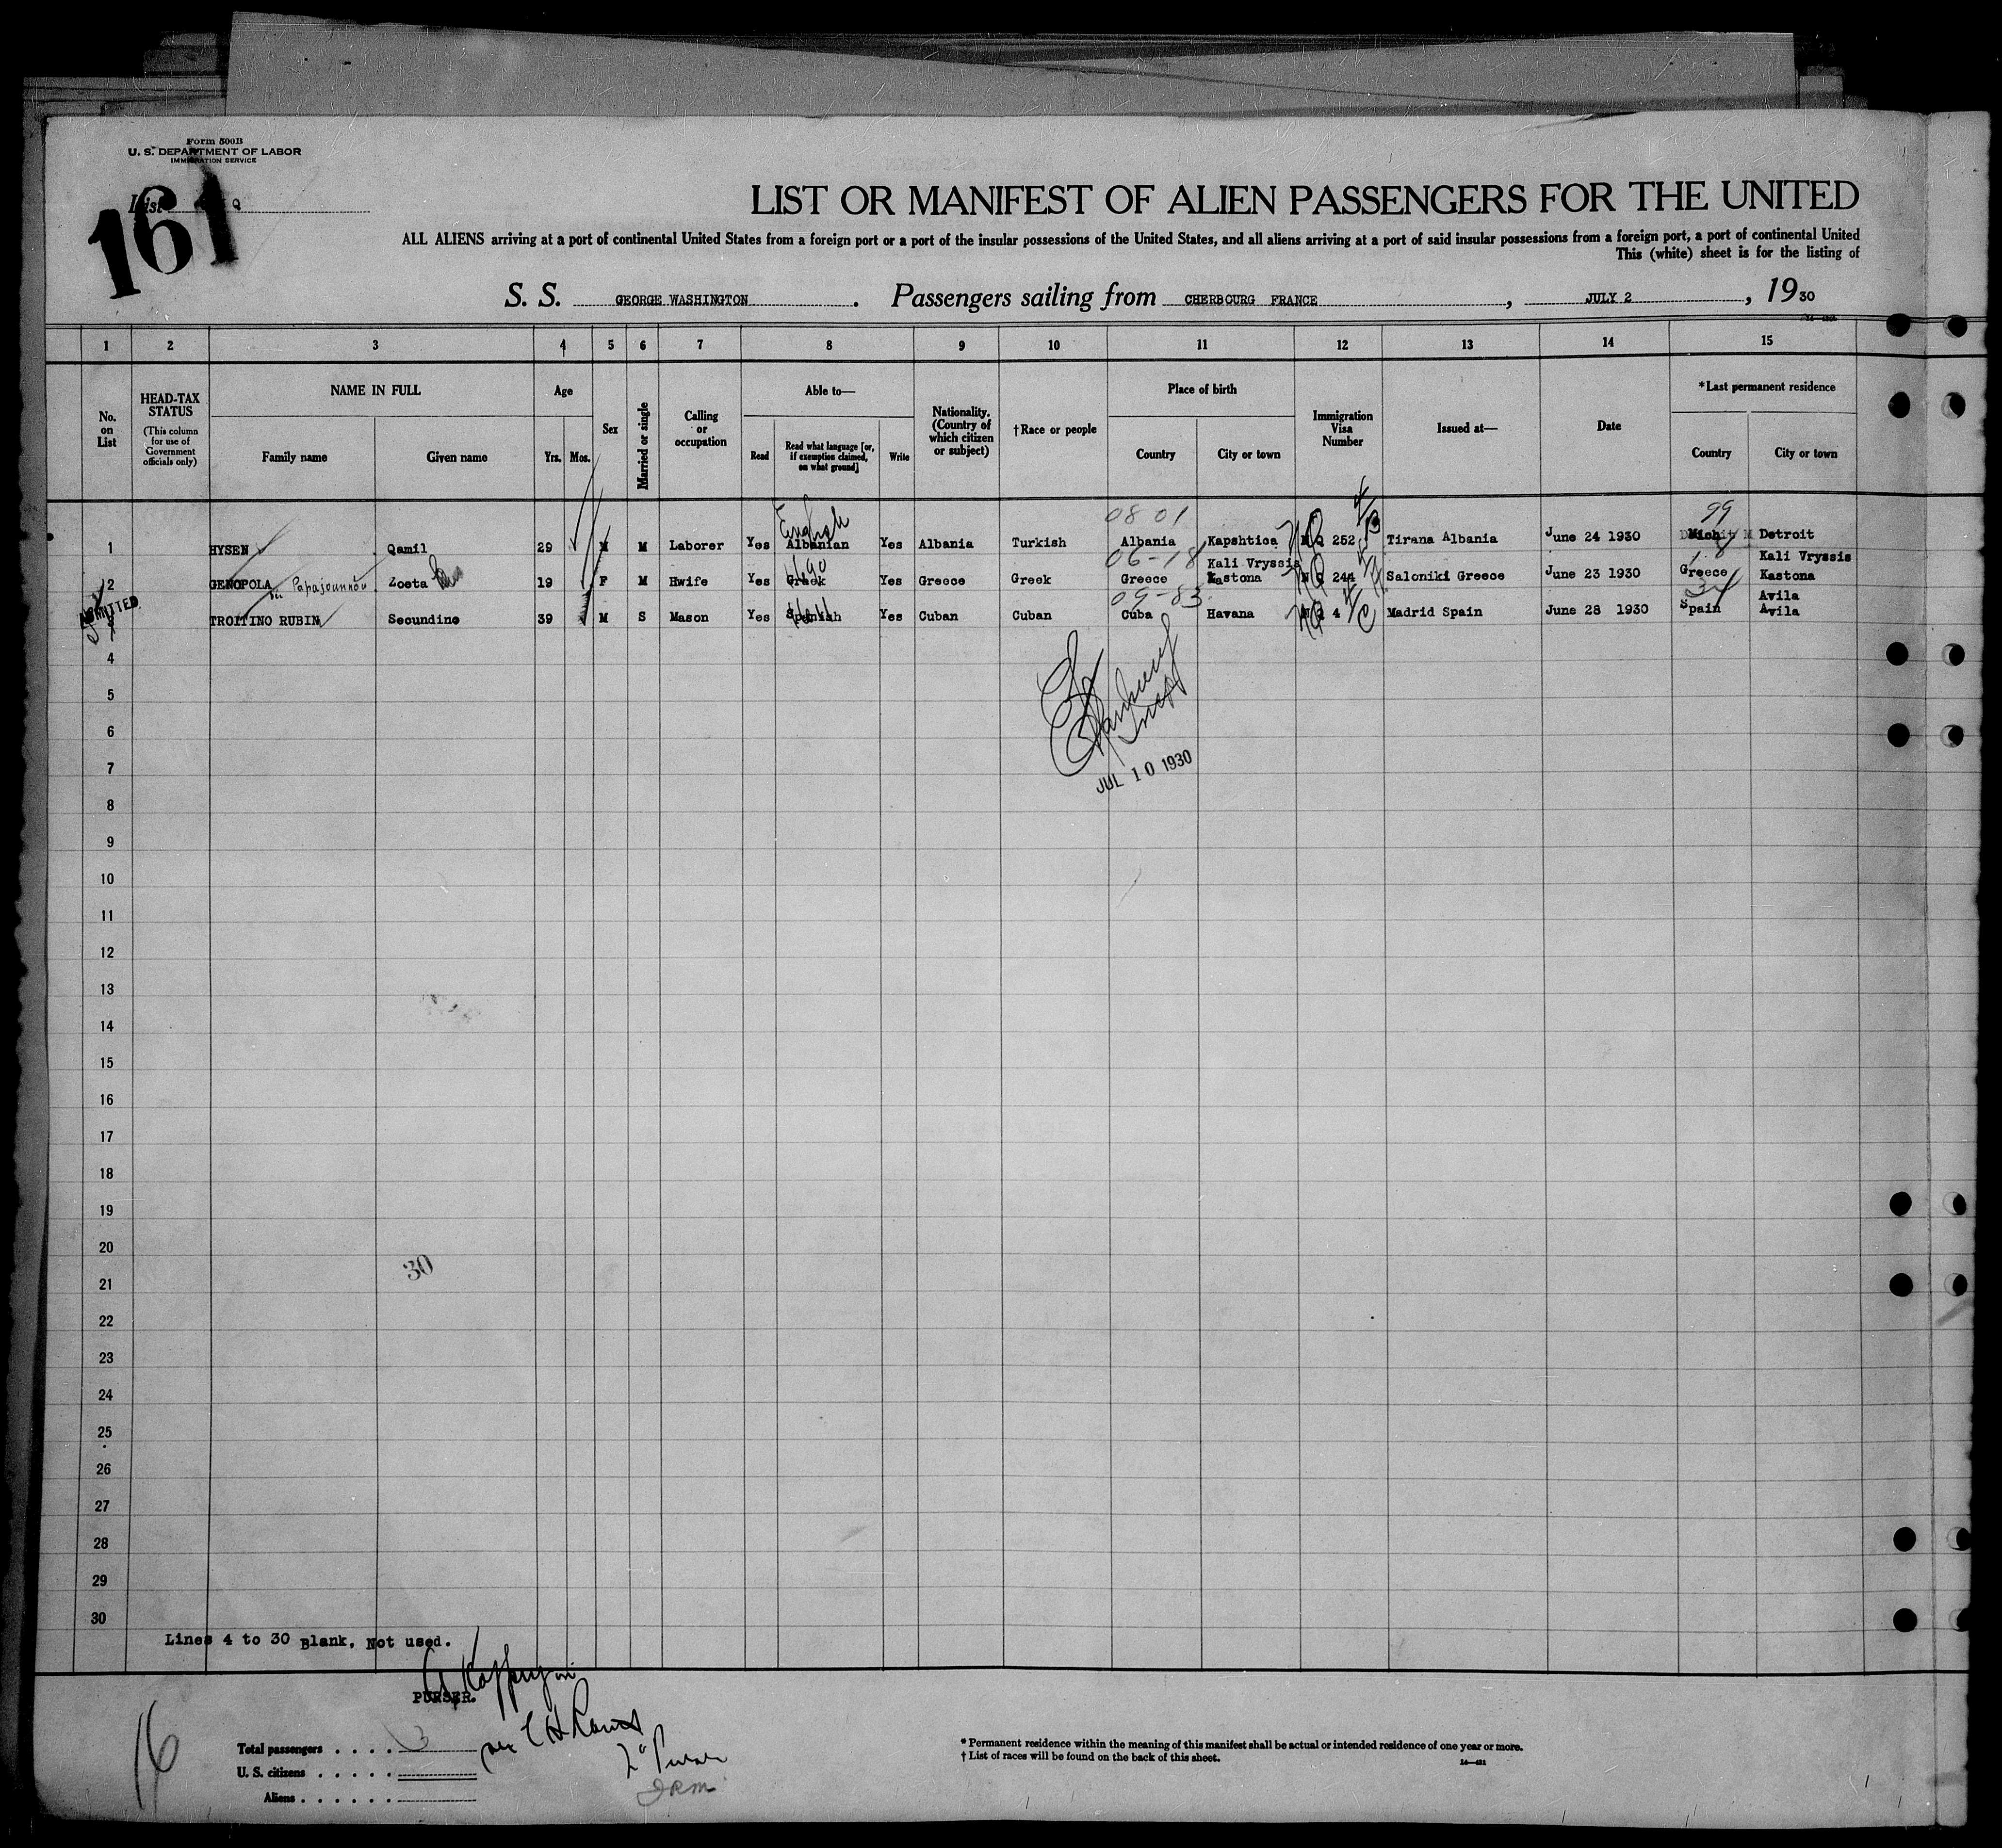 Form 500B
U. S. DEPARTMENT OF LABOR
IMMIGRATION SERVICE
List
161
LIST OR MANIFEST OF ALIEN PASSENGERS FOR THE UNITED
ALL ALIENS arriving at a port of continental United States from a foreign port or a port of the insular possessions of the United States, and all aliens arriving at a port of said insular possessions from a foreign port, a port of continental United
This (white) sheet is for the listing of
S. S. GEORGE WASHINGTON . Passengers sailing from CHERBOURG FRANCE , JULY 2 , 1930
1 2 3 4 5 6 7 8 9 10 11 12 13 14 15
No. on List
HEAD-TAX STATUS (This column for use of Government officials only)
NAME IN FULL
Family name
Given name
Age
Yrs.
Mos.
Sex
Married or single
Calling or occupation
Able to—
Read
Read what language [or, if exemption claimed, on what ground]
Write
Nationality. (Country of which citizen or subject)
†Race or people
Place of birth
Country
City or town
Immigration Visa Number
Issued at—
Date
*Last permanent residence
Country
City or town
English 0801 99
1 HYSEN Qamil 29 M M Laborer Yes Albanian Yes Albania Turkish Albania Kapshtica N Q 252 Tirana Albania June 24 1930 Mich Detroit
06-18 Kali Vryssis Kali Vryssis
2 GENOPOLA Papajoannou Zoeta 19 F M Hwife Yes Greek Yes Greece Greek Greece Kastona N Q 244 Saloniki Greece June 23 1930 Greece Kastona
ADMITTED 09-83 Avila
3 TROITINO RUBIN Secundino 39 M S Mason Yes Spanish Yes Cuban Cuban Cuba Havana N Q 4 Madrid Spain June 28 1930 Spain Avila
4
5
6
7
JUL 10 1930
8
9
10
11
12
13
14
15
16
17
18
19
20
30
21
22
23
24
25
26
27
28
29
30
Lines 4 to 30 Blank, Not used.
PURSER.
16
Total passengers . . . . 3
U. S. citizens . . . . .
Aliens . . . . . .
* Permanent residence within the meaning of this manifest shall be actual or intended residence of one year or more.
† List of races will be found on the back of this sheet.